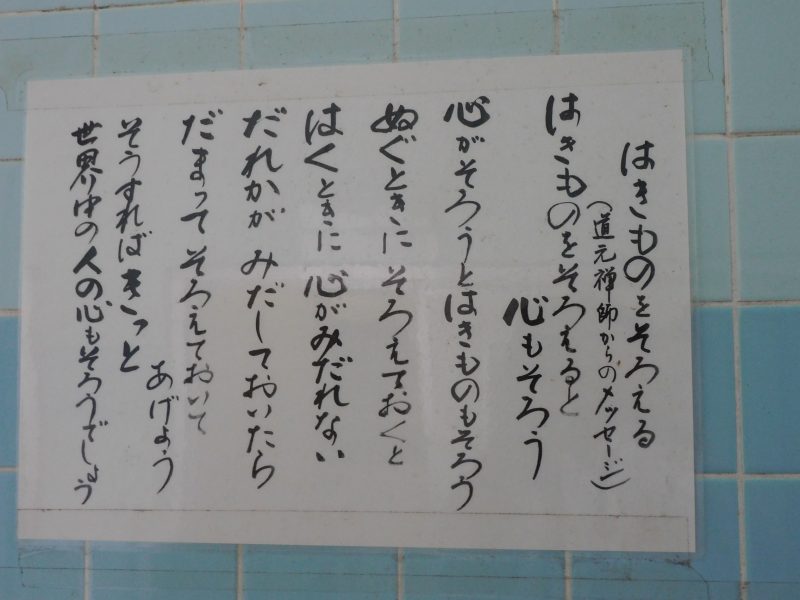 はきものをそろえる
(道元禅師からのメッセージ)
はきものをそろえると
心もそろう
心がそろうとはきものもそろう
ぬぐときにそろえておくと
はくときに心がみだれない
だれかが みだしておいたら
だまって そろえておいて
あげよう
そうすればきっと
世界中の人の心もそろうでしょう